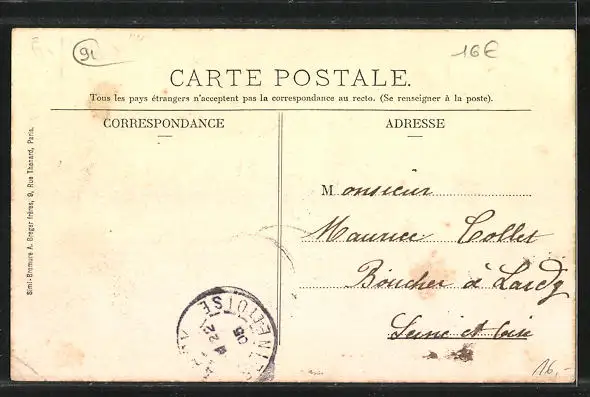 91
16€
CARTE POSTALE.
Tous les pays étrangers n'acceptent pas la correspondance au recto. (Se renseigner à la poste).
CORRESPONDANCE
ADRESSE
Monsieur
Maurice Collet
Boucher à Lardy
Seine et Oise
Simi-Bromure A. Breger frères, 9, Rue Thenard, Paris.
22
05
ET OISE
16,-